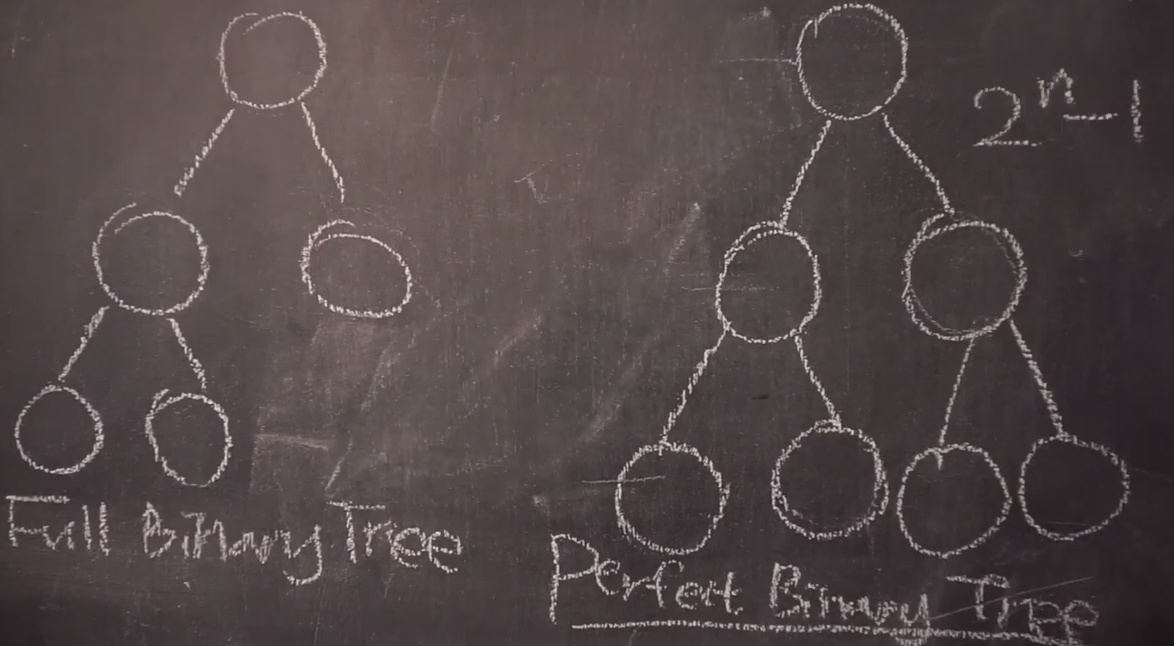 2ⁿ-1
Full Binary Tree
Perfect Binary Tree